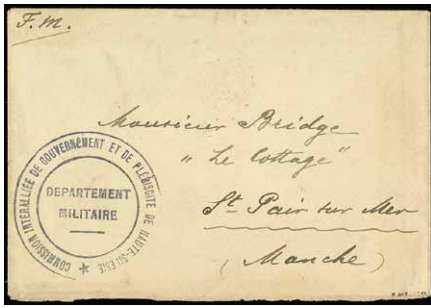 F.M.
Monsieur Bridge
"Le Cottage"
St Pair sur Mer
(Manche)
COMMISSION INTERALLIÉE DE GOUVERNEMENT ET DE PLÉBISCITE DE HAUTE-SILÉSIE
DEPARTEMENT
MILITAIRE